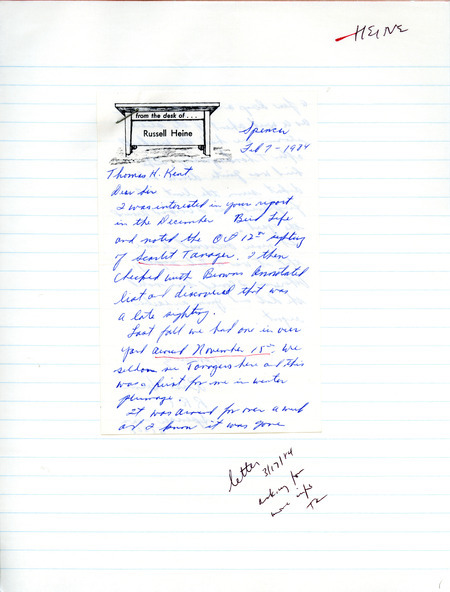 HEINE
from the desk of...
Russell Heine
Spencer
Feb 7 - 1984
Thomas H. Kent
Dear Sir
I was interested in your report
in the December Bird Life
and noted the Oct 12th sighting
of Scarlet Tanager. I then
checked with Browns Annotated
list and discovered that was
a late sighting.
Last fall we had one in our
yard around November 15th. We
seldom see Tanagers here and this
was a first for me in winter
plumage.
It was around for over a week
and I know it was gone
letter
3/17/84
asking for
more info
TK